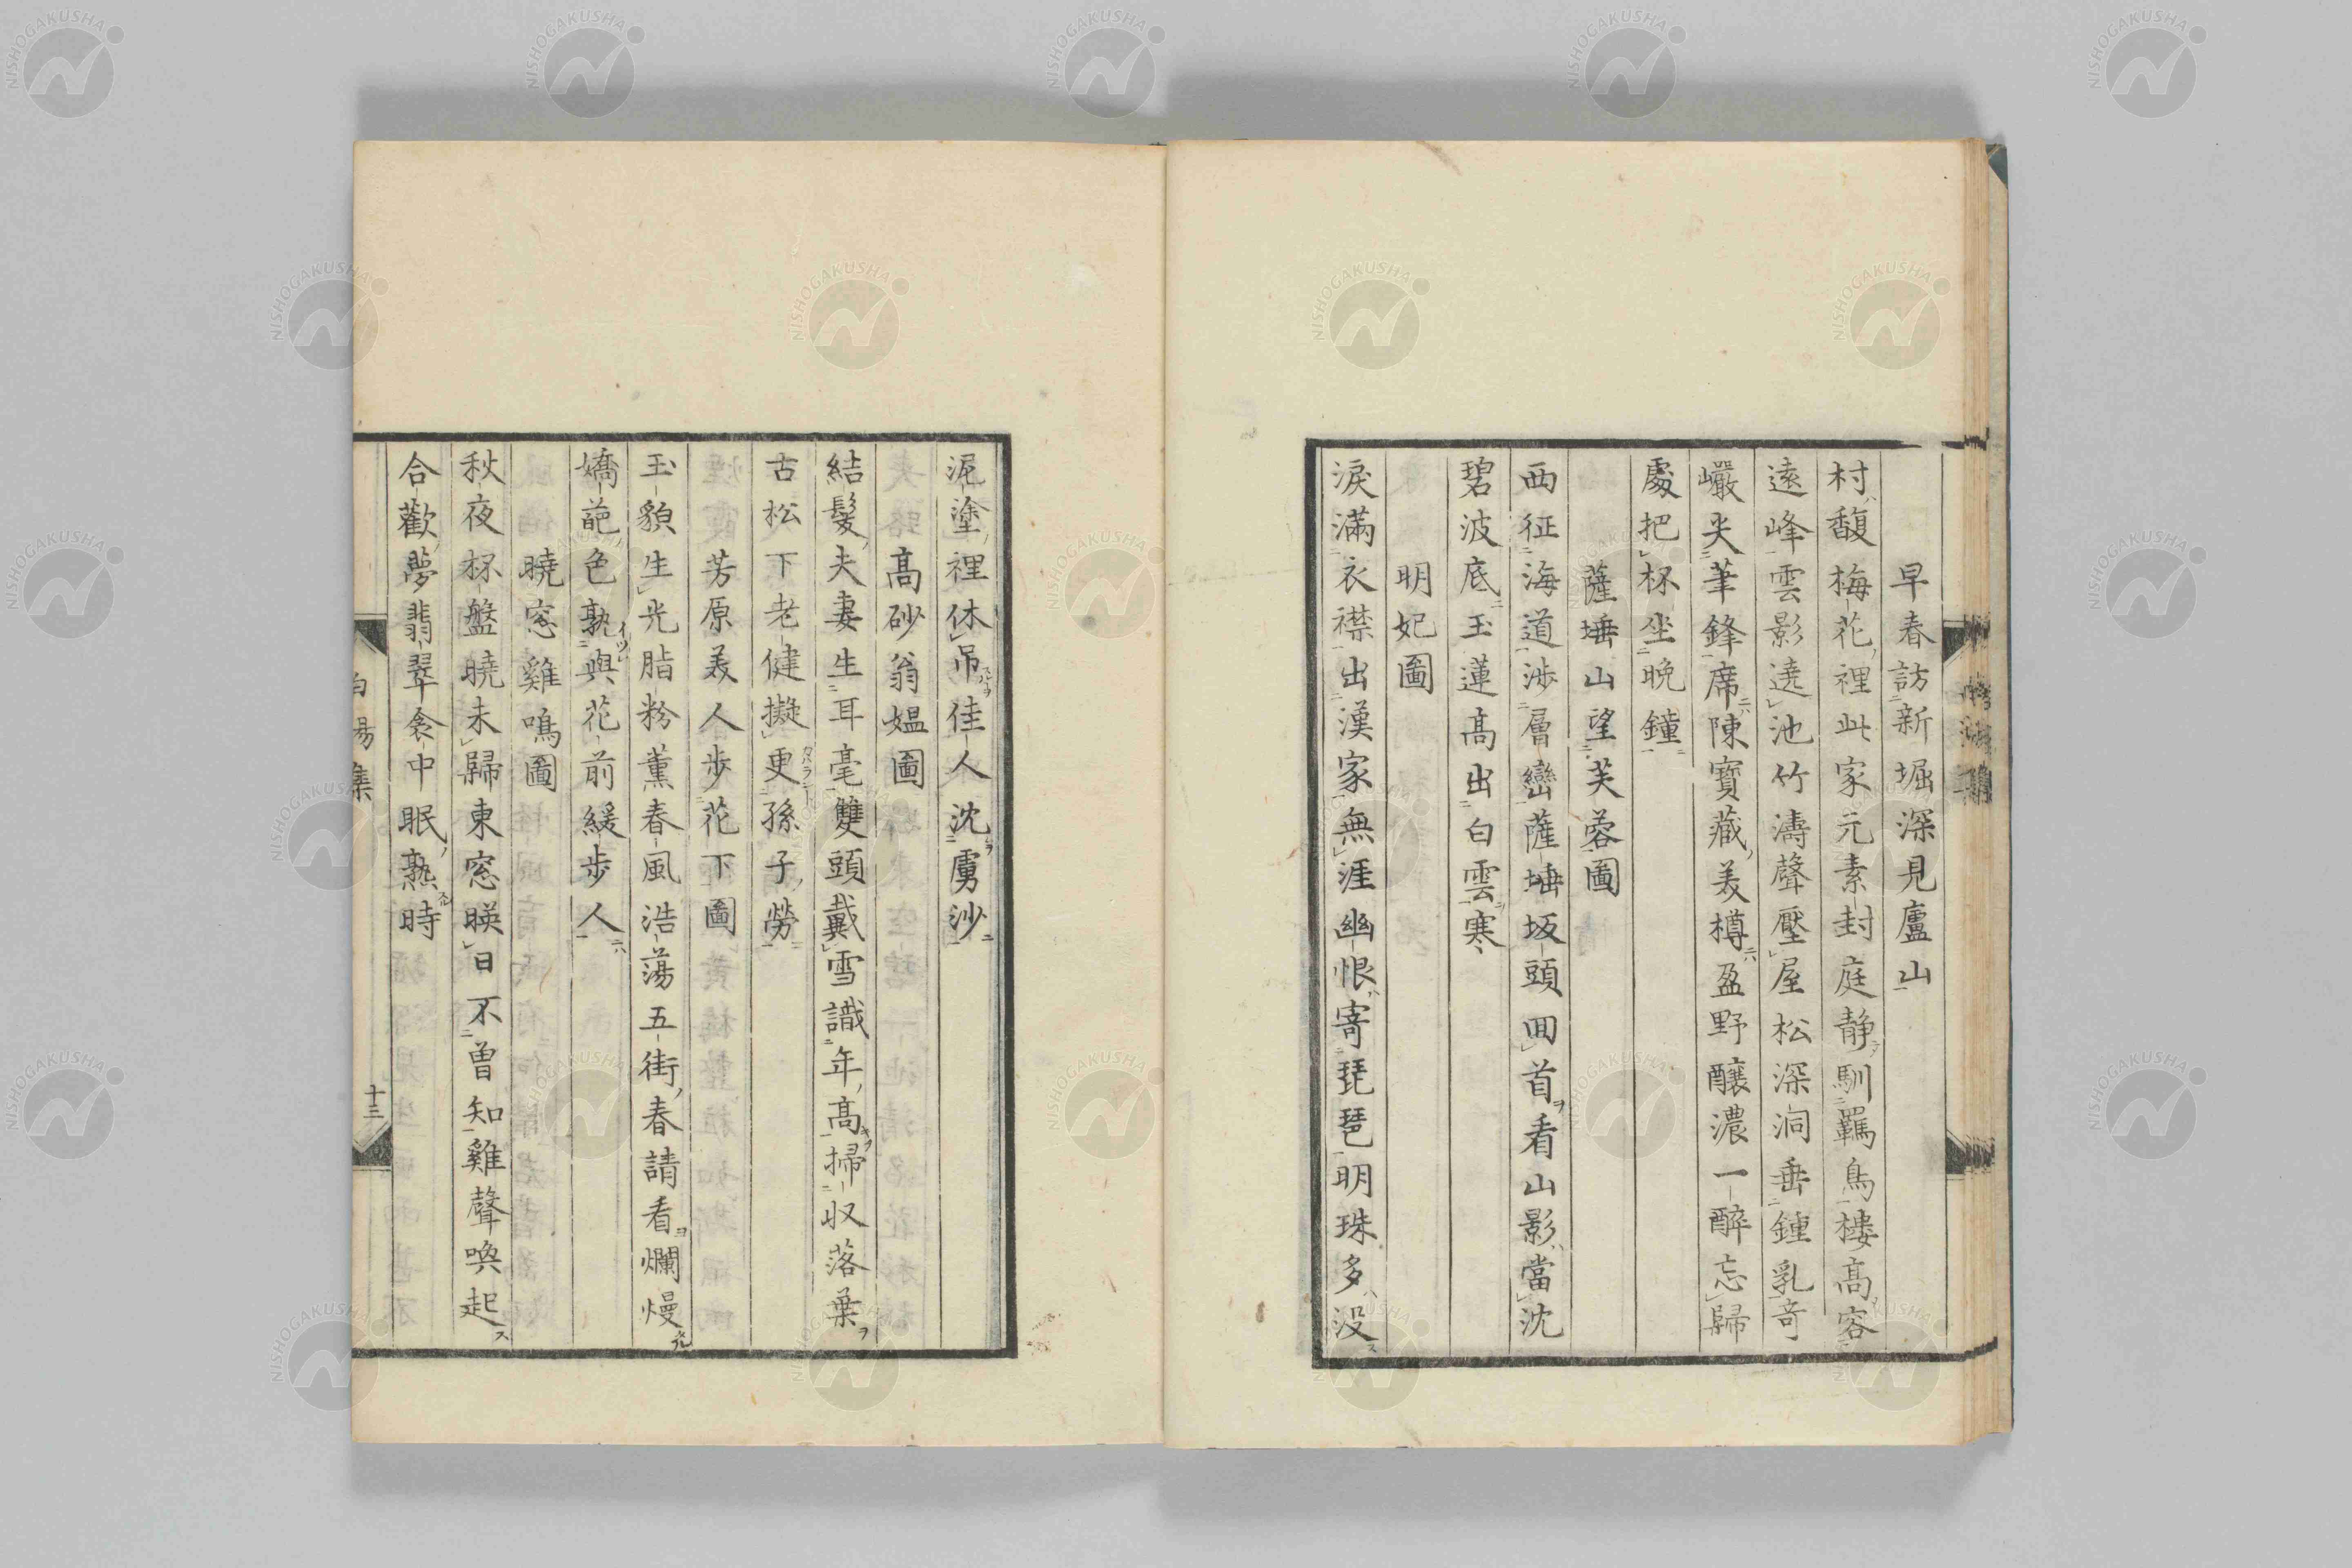 早春訪新堀深見廬山
村馥梅花裡此家元素封庭靜馴羈鳥樓高容
遠峰雲影遶池竹濤聲壓屋松深洞垂鍾乳奇
巖尖筆鋒席陳寶藏美樽盈野釀濃一醉忘歸
處把杯坐晚鐘
薩埵山望芙蓉圖
西征海道渉層巒薩埵坂頭回首看山影當沈
碧波底玉蓮高出白雲寒
明妃圖
淚滿衣襟出漢家無涯幽恨寄琵琶明珠多没
泥塗裡休吊佳人沈虜沙
高砂翁媼圖
結髮夫妻生耳毫雙頭戴雪識年高掃收落葉
古松下老健擬更孫子勞
芳原美人歩花下圖
玉貌生光脂粉薰春風浩蕩五街春請看爛熳
嬌葩色孰與花前緩歩人
曉窓雞鳴圖
秋夜杯盤曉未歸東窓暎日不曾知雞聲喚起
合歡夢翡翠衾中眠熟時
十三
NISHOGAKUSHA